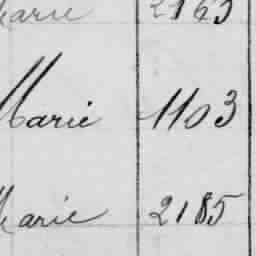 Marie 2163
Marie 1103
Marie 2185